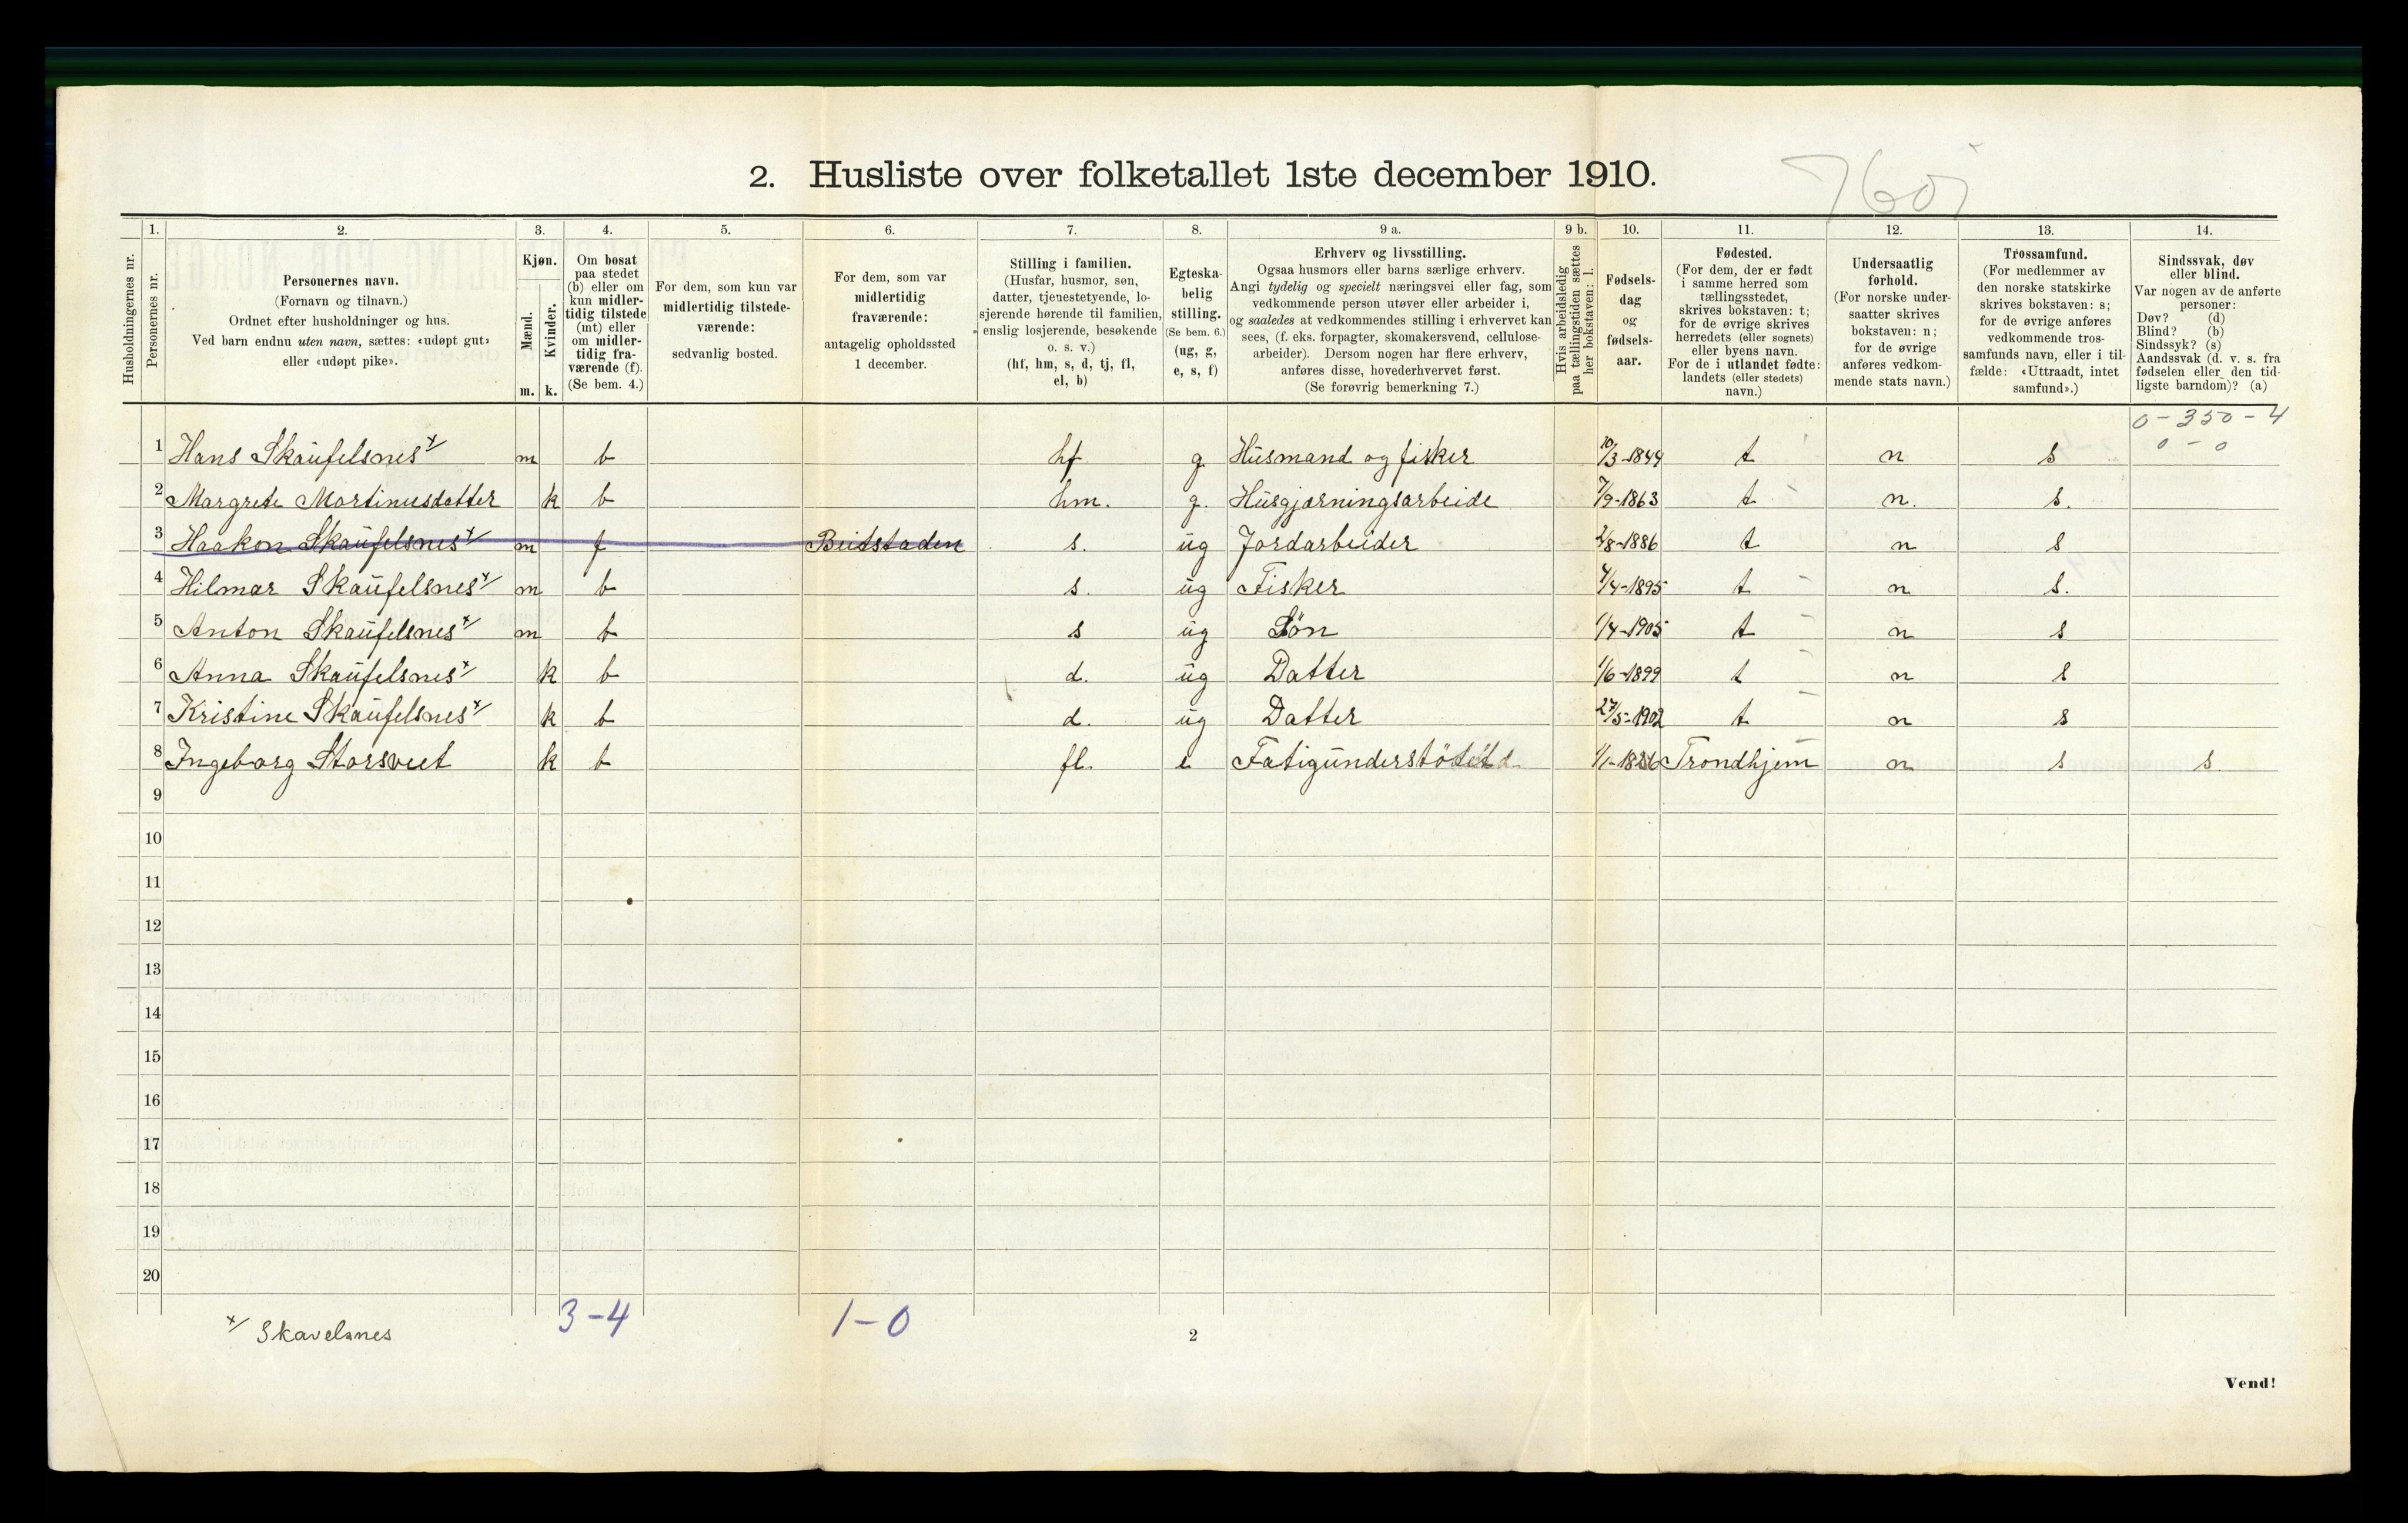 2. Husliste over folketallet 1ste december 1910.
Husholdningernes nr.
1.
Personernes nr.
2.
Personernes navn.
(Fornavn og tilnavn.)
Ordnet efter husholdninger og hus.
Ved barn endnu uten navn, sættes: «udøpt gut»
eller «udøpt pike».
3.
Kjøn.
Mænd.
Kvinder.
m. k.
4.
Om bosat
paa stedet
(b) eller om
kun midler-
tidig tilstede
(mt) eller
om midler-
tidig fra-
værende (f).
(Se bem. 4.)
5.
For dem, som kun var
midlertidig tilstede-
værende:
sedvanlig bosted.
6.
For dem, som var
midlertidig
fraværende:
antagelig opholdssted
1 december.
7.
Stilling i familien.
(Husfar, husmor, søn,
datter, tjenestetyende, lo-
sjerende hørende til familien,
enslig losjerende, besøkende
o. s. v.)
(hf, hm, s, d, tj, fl,
el, b)
8.
Egteska-
belig
stilling.
(Se bem. 6.)
(ug, g,
e, s, f)
9 a.
Erhverv og livsstilling.
Ogsaa husmors eller barns særlige erhverv.
Angi tydelig og specielt næringsvei eller fag, som
vedkommende person utøver eller arbeider i,
og saaledes at vedkommendes stilling i erhvervet kan
sees, (f. eks. forpagter, skomakersvend, cellulose-
arbeider). Dersom nogen har flere erhverv,
anføres disse, hovederhvervet først.
(Se forøvrig bemerkning 7.)
9 b.
Hvis arbeidsledig
paa tællingstiden sættes
her bokstaven: l.
10.
Fødsels-
dag
og
fødsels-
aar.
11.
Fødested.
(For dem, der er født
i samme herred som
tællingsstedet,
skrives bokstaven: t;
for de øvrige skrives
herredets (eller sognets)
eller byens navn.
For de i utlandet fødte:
landets (eller stedets)
navn.)
12.
Undersaatlig
forhold.
(For norske under-
saatter skrives
bokstaven: n;
for de øvrige
anføres vedkom-
mende stats navn.)
13.
Trossamfund.
(For medlemmer av
den norske statskirke
skrives bokstaven: s;
for de øvrige anføres
vedkommende tros-
samfunds navn, eller i til-
fælde: «Uttraadt, intet
samfund».)
14.
Sindssvak, døv
eller blind.
Var nogen av de anførte
personer:
Døv? (d)
Blind? (b)
Sindssyk? (s)
Aandssvak (d. v. s. fra
fødselen eller den tid-
ligste barndom)? (a)
0-350-4
0-0
1 Hans Skaufelsnes x/ m b hf g Husmand og fisker 10/3-1849 t n s
2 Margrete Martinusdatter k b hm. g. Husgjærningsarbeide 7/9-1863 t n. s.
3 Haakon Skaufelsnes x/ m f Beidstaden s. ug Jordarbeider 2/8-1886 t n s
4 Hilmar Skaufelsnes x/ m b s. ug Fisker 4/4-1895 t n s.
5 Anton Skaufelsnes x/ m b s ug Sön 1/4-1905 t n s
6 Anna Skaufelsnes x/ k b d. ug Datter 1/6-1899 t n s
7 Kristine Skaufelsnes x/ k b d. ug Datter 27/5-1902 t n s
8 Ingeborg Storsveet k b fl. e Fatigunderstötet 1/1-1826 Trondhjem n s s.
9
10
11
12
13
14
15
16
17
18
19
20
x/ Skavelsnes
3-4
1-0
2
Vend!